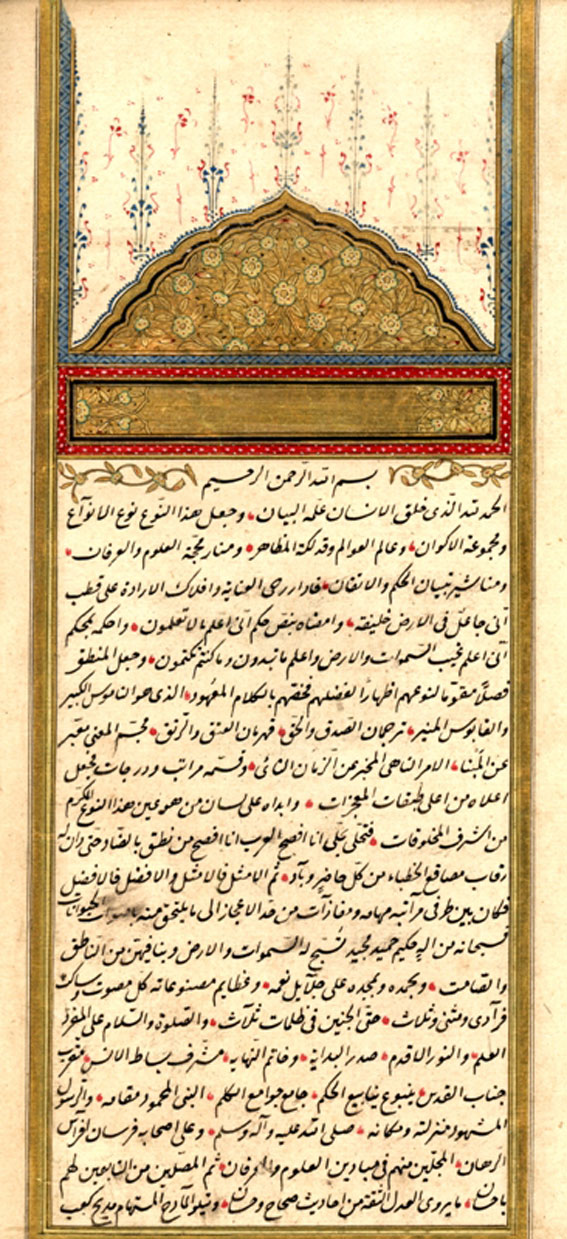 بسم الله الرحمن الرحيم
الحمد لله الذى خلق الانسان علمه البيان وجعل هذا النوع نوع الانواع
ومجموعة الاكوان وعالم العوالم وفذلكة المظاهر ومنار محجة العلوم والعرفان
ومناشير تبيان الحكم والاتقان فادار رحى العناية وافلاك الارادة على قطب
انى جاعل فى الارض خليفة وامضاه بنص حكم انى اعلم ما لا تعلمون واحكمه بمحكم
انى اعلم غيب السموات والارض واعلم ما تبدون وما كنتم تكتمون وجعل المنطق
فصلا مقوما لنوعهم اظهارا لفضلهم فخصهم بالكلام المعهود الذى هو الناموس الكبير
والقابوس المنير ترجمان الصدق والحق قهرمان الفتق والرتق مجسم المعنى معبر
عن المبنا الامر الناهى المخبر عن الزمان الثانى وقسمه مراتب ودرجات فجعل
اعلاه من اعلى طبقات المعجزات وابداه على لسان من هو عين هذا النوع المكرم
من اشرف المخلوقات فتحلى بحلى انا افصح العرب انا افصح من نطق بالضاد حتى دان له
رقاب مصاقع الخطباء من كل حاضر وباد ثم الامثل فالامثل والافضل فالافضل
فكان بين طرفى مراتبه مهامه ومفازات من حد الاعجاز الى ما يلتحق منه باصوات الحيوانات
فسبحانه من اله حكيم حميد مجيد تسبح له السموات والارض وما فيهن من الناطق
والصامت ويحمده ويمجده على جلايل نعمه وعظايم مصنوعاته كل مصوت وساكت
فرادى ومثنى وثلاث حتى الجنين فى ظلمات ثلاث والصلوة والسلام على المفرد
العلم والنور الاقدم صدر البداية وخاتم النهاية مشرف بساط الانس مقرب
جناب القدس ينبوع ينابيع الحكم جامع جوامع الكلم النبى المحمود مقامه والرسول
المشهود منزلته ومكانه صلى الله عليه وآله وسلم وعلى اصحابه فرسان افراس
الرهان المجلين منهم فى ميادين العلوم والعرفان ثم المصلين من التابعين لهم
باحسان ما يروى العدل الثقة من احاديث صحاح وحسان ويتلو المادح المستهام مديح كعب